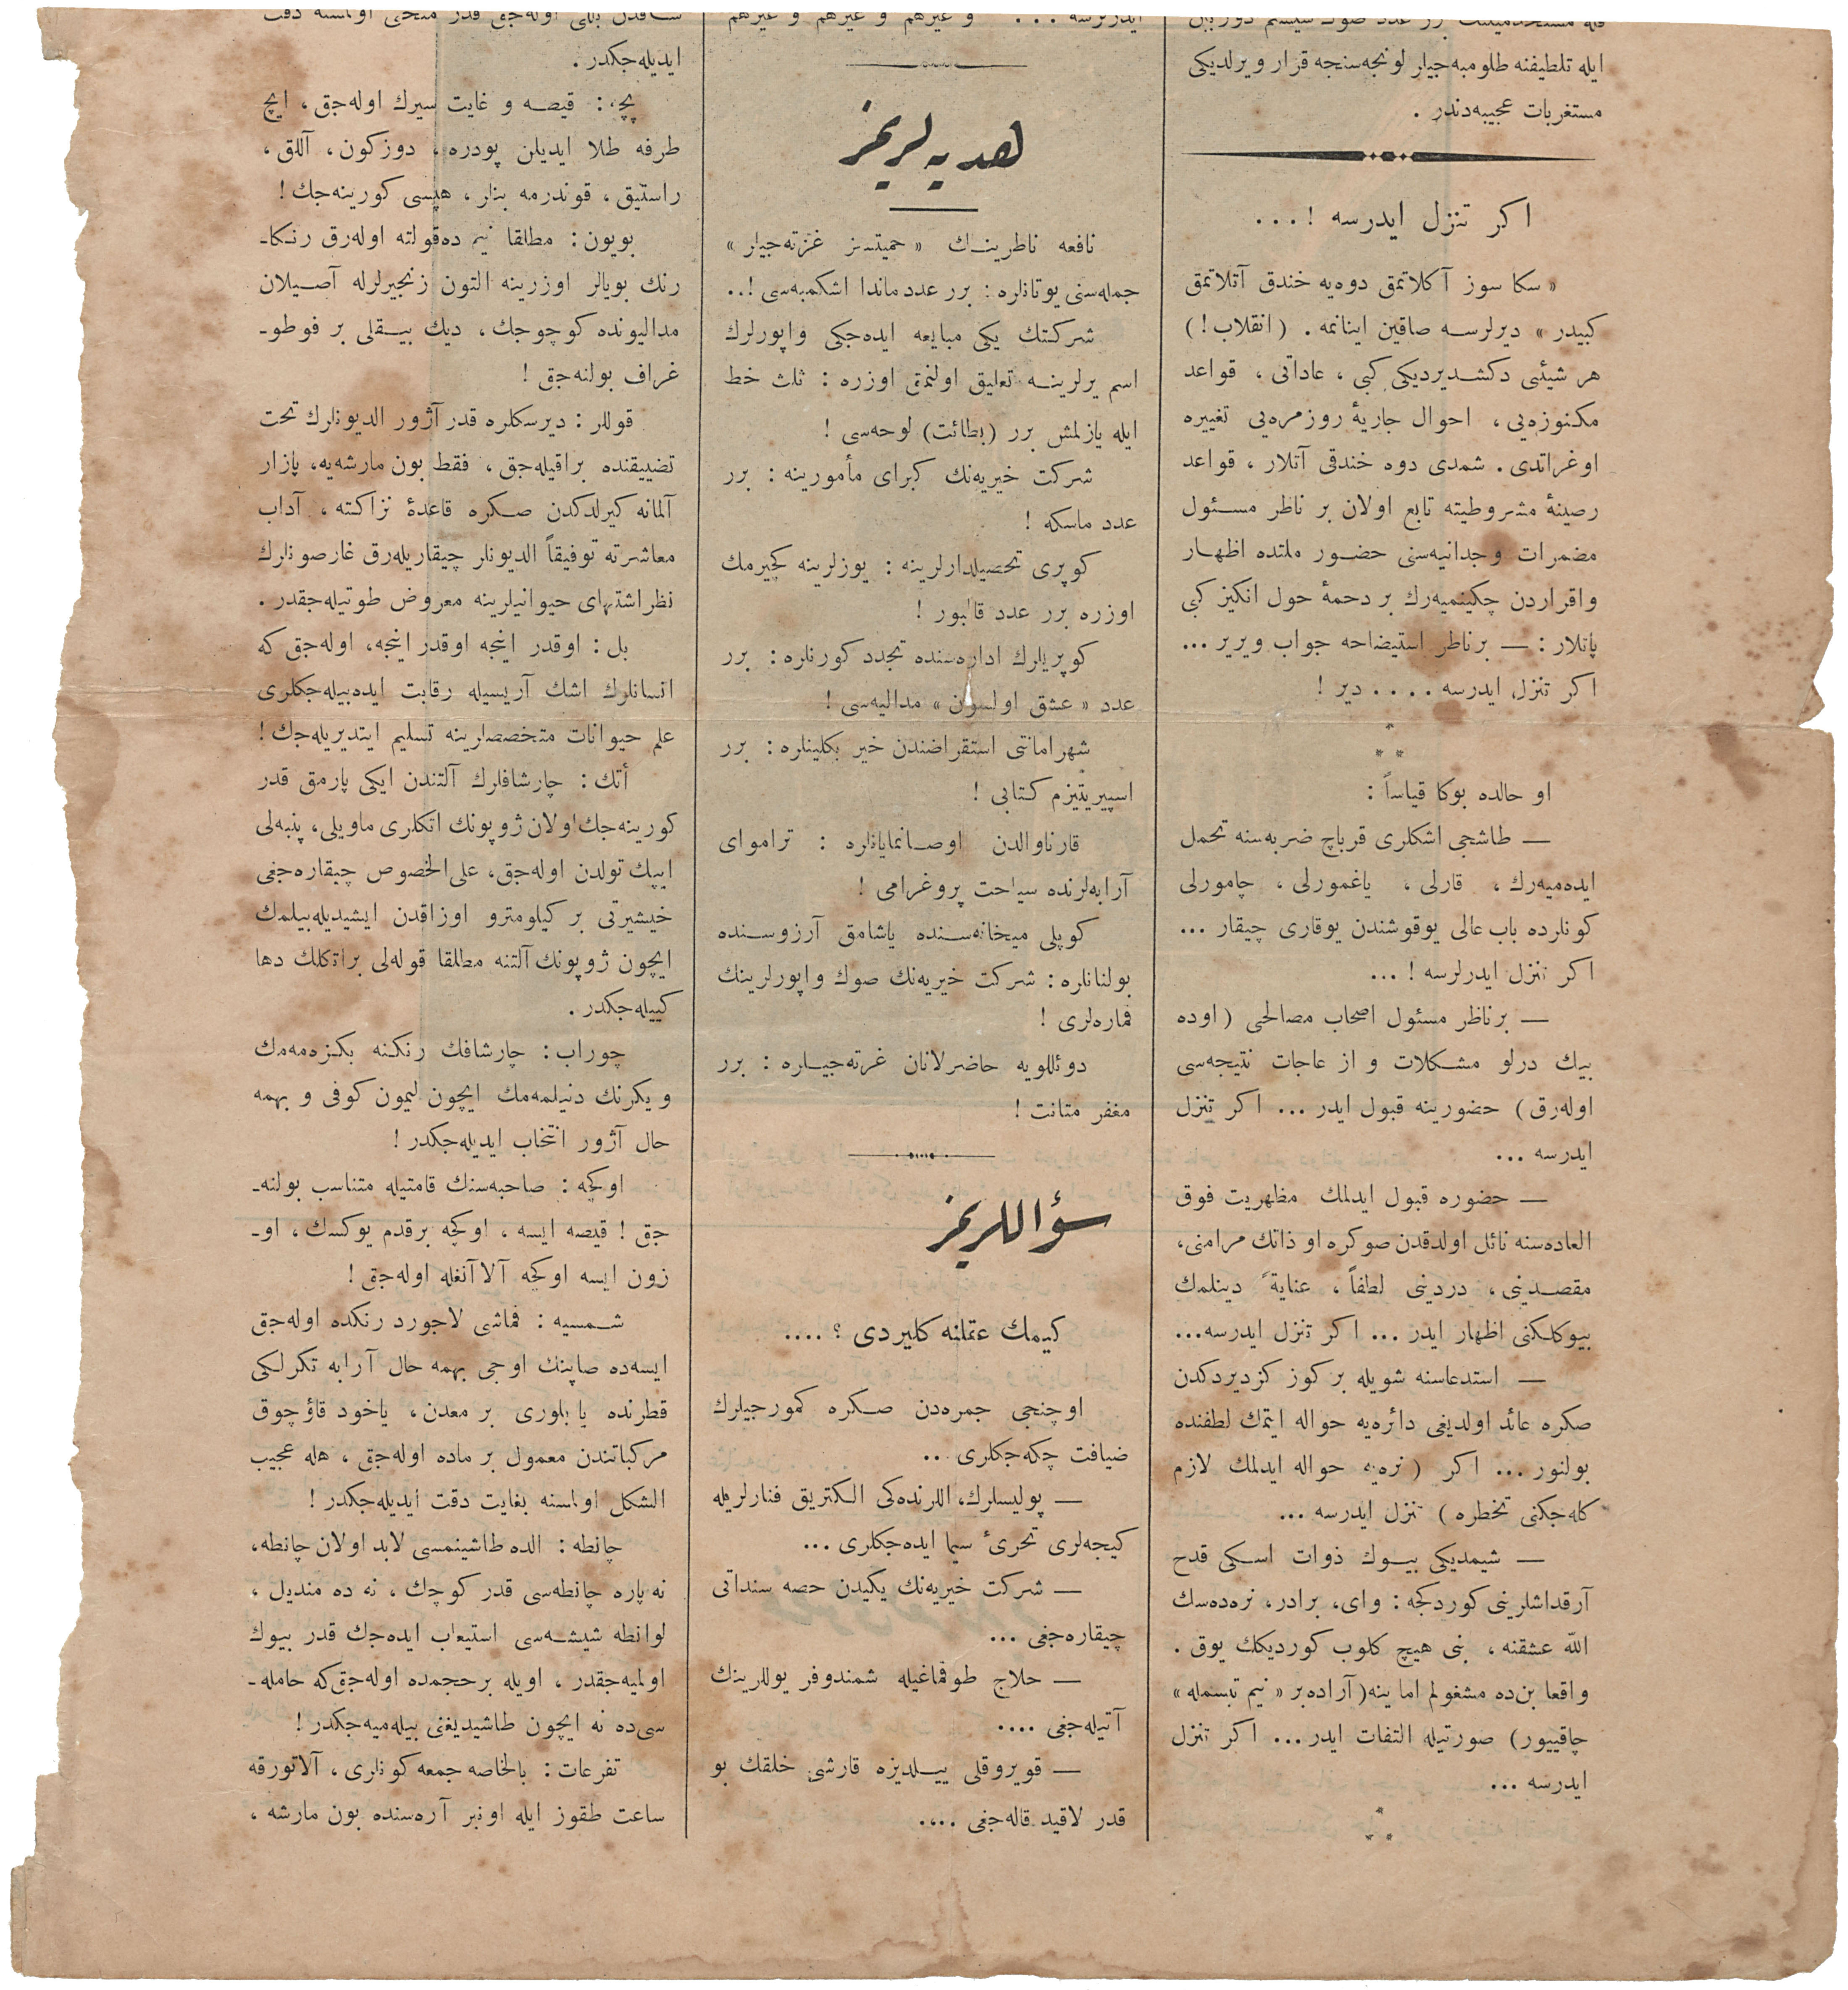 ايله تلطيفنه طلومبه‌جيلر لونجه‌سنجه قرار ويرلديكى
مستغربات عجيبه‌دندر .
اكر تنزل ايدرسه ! ...
« سكا سوز آكلاتمق دوه‌يه خندق آتلاتمق
كبيدر » ديرلرسه صاقين اينانمه . ( انقلاب ! )
هر شيئى دكشديرديكى كبى ، عاداتى ، قواعد
مكنوزه‌يى ، احوال جاريهٔ روزمره‌يى تغييره
اوغراتدى . شمدى دوه خندقى آتلار ، قواعد
رصينهٔ مشروطيته تابع اولان بر ناظر مسئول
مضمرات وجدانيه‌سنى حضور ملتده اظهار
واقراردن چكينميه‌رك بر دحمهٔ حول انكيز كبى
پاتلار : — برناظر استيضاحه جواب ويرير ...
اكر تنزل ايدرسه .... دير !
* * *
او حالده بوكا قياساً :
— طاشجى اشكلرى قرباچ ضربه‌سنه تحمل
ايده‌ميه‌رك ، قارلى ، ياغمورلى ، چامورلى
كونلرده باب عالى يوقوشندن يوقارى چيقار ...
اكر تنزل ايدرلرسه ! ...
— برناظر مسئول اصحاب مصالحى ( اوده
بيك درلو مشكلات و ازعاجات نتيجه‌سى
اوله‌رق ) حضورينه قبول ايدر ... اكر تنزل
ايدرسه ...
— حضوره قبول ايدلمك مظهريت فوق
العاده‌سنه نائل اولدقدن صوكره او ذاتك مرامنى،
مقصدينى ، دردينى لطفاً ، عنايةً دينلمك
بيوكلكنى اظهار ايدر ... اكر تنزل ايدرسه...
— استدعاسنه شويله بر كوز كزديردكدن
صكره عائد اولديغى دائره‌يه حواله ايتمك لطفنده
بولنور ... اكر ( نره‌يه حواله ايدلمك لازم
كله‌جكنى تخطره ) تنزل ايدرسه ...
— شيمديكى بيوك ذوات اسكى قدح
آرقداشلرينى كوردكجه : واى، برادر، نره‌ده‌سك
الله عشقنه ، بنى هيچ كلوب كورديكك يوق .
واقعا بن‌ده مشغولم اما ينه( آراده‌بر « نيم تبسمله »
چاقييور ) صورتيله التفات ايدر ... اكر تنزل
ايدرسه ...
* * *
ايدرلرسه ... و غيرهم و غيرهم و غيرهم
هديه‌لريمز
نافعه ناظرينك « حميتسز غزته‌جيلر »
جمله‌سنى يوتانلره : برر عدد ماندا اشكمبه‌سى !..
شركتك يكى مبايعه ايده‌جكى واپورلرك
اسم يرلرينه تعليق اولنمق اوزره : ثلث خط
ايله يازلمش برر (بطائت) لوحه‌سى !
شركت خيريه‌نك كبراى مأمورينه : برر
عدد ماسكه !
كوپرى تحصيلدارلرينه : يوزلرينه كچيرمك
اوزره برر عدد قالبور !
كوپريلرك اداره‌سنده تجدد كورنلره : برر
عدد « عشق اولسون » مداليه‌سى !
شهرامانتى استقراضندن خير بكلينلره : برر
اسپيريتيزم كتابى !
قارناوالدن اوصانمايانلره : تراموای
آرابه‌لرنده سياحت پروغرامى !
كوپلى ميخانه‌سنده ياشامق آرزوسنده
بولنانلره : شركت خيريه‌نك صوك واپورلرينك
قماره‌لرى !
دوئللويه حاضرلانان غزته‌جيلره : برر
مغفر متانت !
سؤاللريمز
كيمك عقلنه كليردى ؟ ....
اوچنجى جمره‌دن صكره كمورجيلرك
ضيافت چكه‌جكلرى ..
— پوليسلرك، اللرنده‌كى الكتريق فنارلريله
كيجه‌لرى تحرئ سيما ايده‌جكلرى ...
— شركت خيريه‌نك يكيدن حصه سنداتى
چيقاره‌جغى ...
— حلاج طوقماغيله شمندوفر يوللرينك
آتيله‌جغى ....
— قويروقلى ييلديزه قارشى خلقك بو
قدر لاقيد قاله‌جغى ....
ايديله‌جكدر .
پچه : قيصه و غايت سيرك اوله‌جق ، ايچ
طرفه طلا ايديلن پودره ، دوزكون ، آللق ،
راستيق ، قوندرمه بنلر ، هپسى كورينه‌جك !
بويون : مطلقا نيم ده‌قولته اوله‌رق رنكا-
رنك بويالر اوزرينه التون زنجيرلرله آصيلان
مداليونده كوچوجك ، ديك بيقلى بر فوطو-
غراف بولنه‌جق !
قوللر : ديرسكلره قدر آژور الديونلرك تحت
تضييقنده براقيله‌جق ، فقط بون مارشه‌يه، پازار
آلمانه كيرلدكدن صكره قاعدهٔ نزاكته ، آداب
معاشرته توفيقاً الديونلر چيقاريله‌رق غارصونلرك
نظر اشتهاى حيوانيلرينه معروض طوتيله‌جقدر .
بل : اوقدر اينجه اوقدر اينجه، اوله‌جق كه
انسانلرك اشك آريسيله رقابت ايده‌بيله‌جكلرى
علم حيوانات متخصصلرينه تسليم ايتديريله‌جك !
أتك : چارشافلرك آلتندن ايكى پارمق قدر
كورينه‌جك اولان ژوپونك اتكلرى ماويلى، پنبه‌لى
ايپك تولدن اوله‌جق، على‌الخصوص چيقاره‌جغى
خيشيرتى بر كيلومترو اوزاقدن ايشيديله‌بيلمك
ايچون ژوپونك آلتنه مطلقا قوله‌لى براتكلك دها
كييله‌جكدر .
چوراب : چارشافك رنكنه بكزه‌مه‌مك
و يكرنك دنيلمه‌مك ايچون ليمون كوفى و بهمه
حال آژور انتخاب ايديله‌جكدر !
اوكچه : صاحبه‌سنك قامتيله متناسب بولنه-
جق ! قيصه ايسه ، اوكچه برقدم يوكسك ، او-
زون ايسه اوكچه آلاآنغله اوله‌جق !
شمسيه : قماشى لاجورد رنكده اوله‌جق
ايسه‌ده صاپنك اوجى بهمه حال آرابه تكرلكى
قطرنده يا بلورى بر معدن ، ياخود قاؤچوق
مركباتندن معمول بر ماده اوله‌جق ، هله عجيب
الشكل اولمسنه بغايت دقت ايديله‌جكدر !
چانطه : الده طاشينمسى لابد اولان چانطه،
نه پاره چانطه‌سى قدر كوچك ، نه ده منديل ،
لوانطه شيشه‌سى استيعاب ايده‌جك قدر بيوك
اولميه‌جقدر ، اويله برحجمده اوله‌جق كه حامله-
سى‌ده نه ايچون طاشيديغنى بيله‌ميه‌جكدر !
تفرعات : بالخاصه جمعه كونلرى ، آلاتورقه
ساعت طقوز ايله اونبر آره‌سنده بون مارشه ،